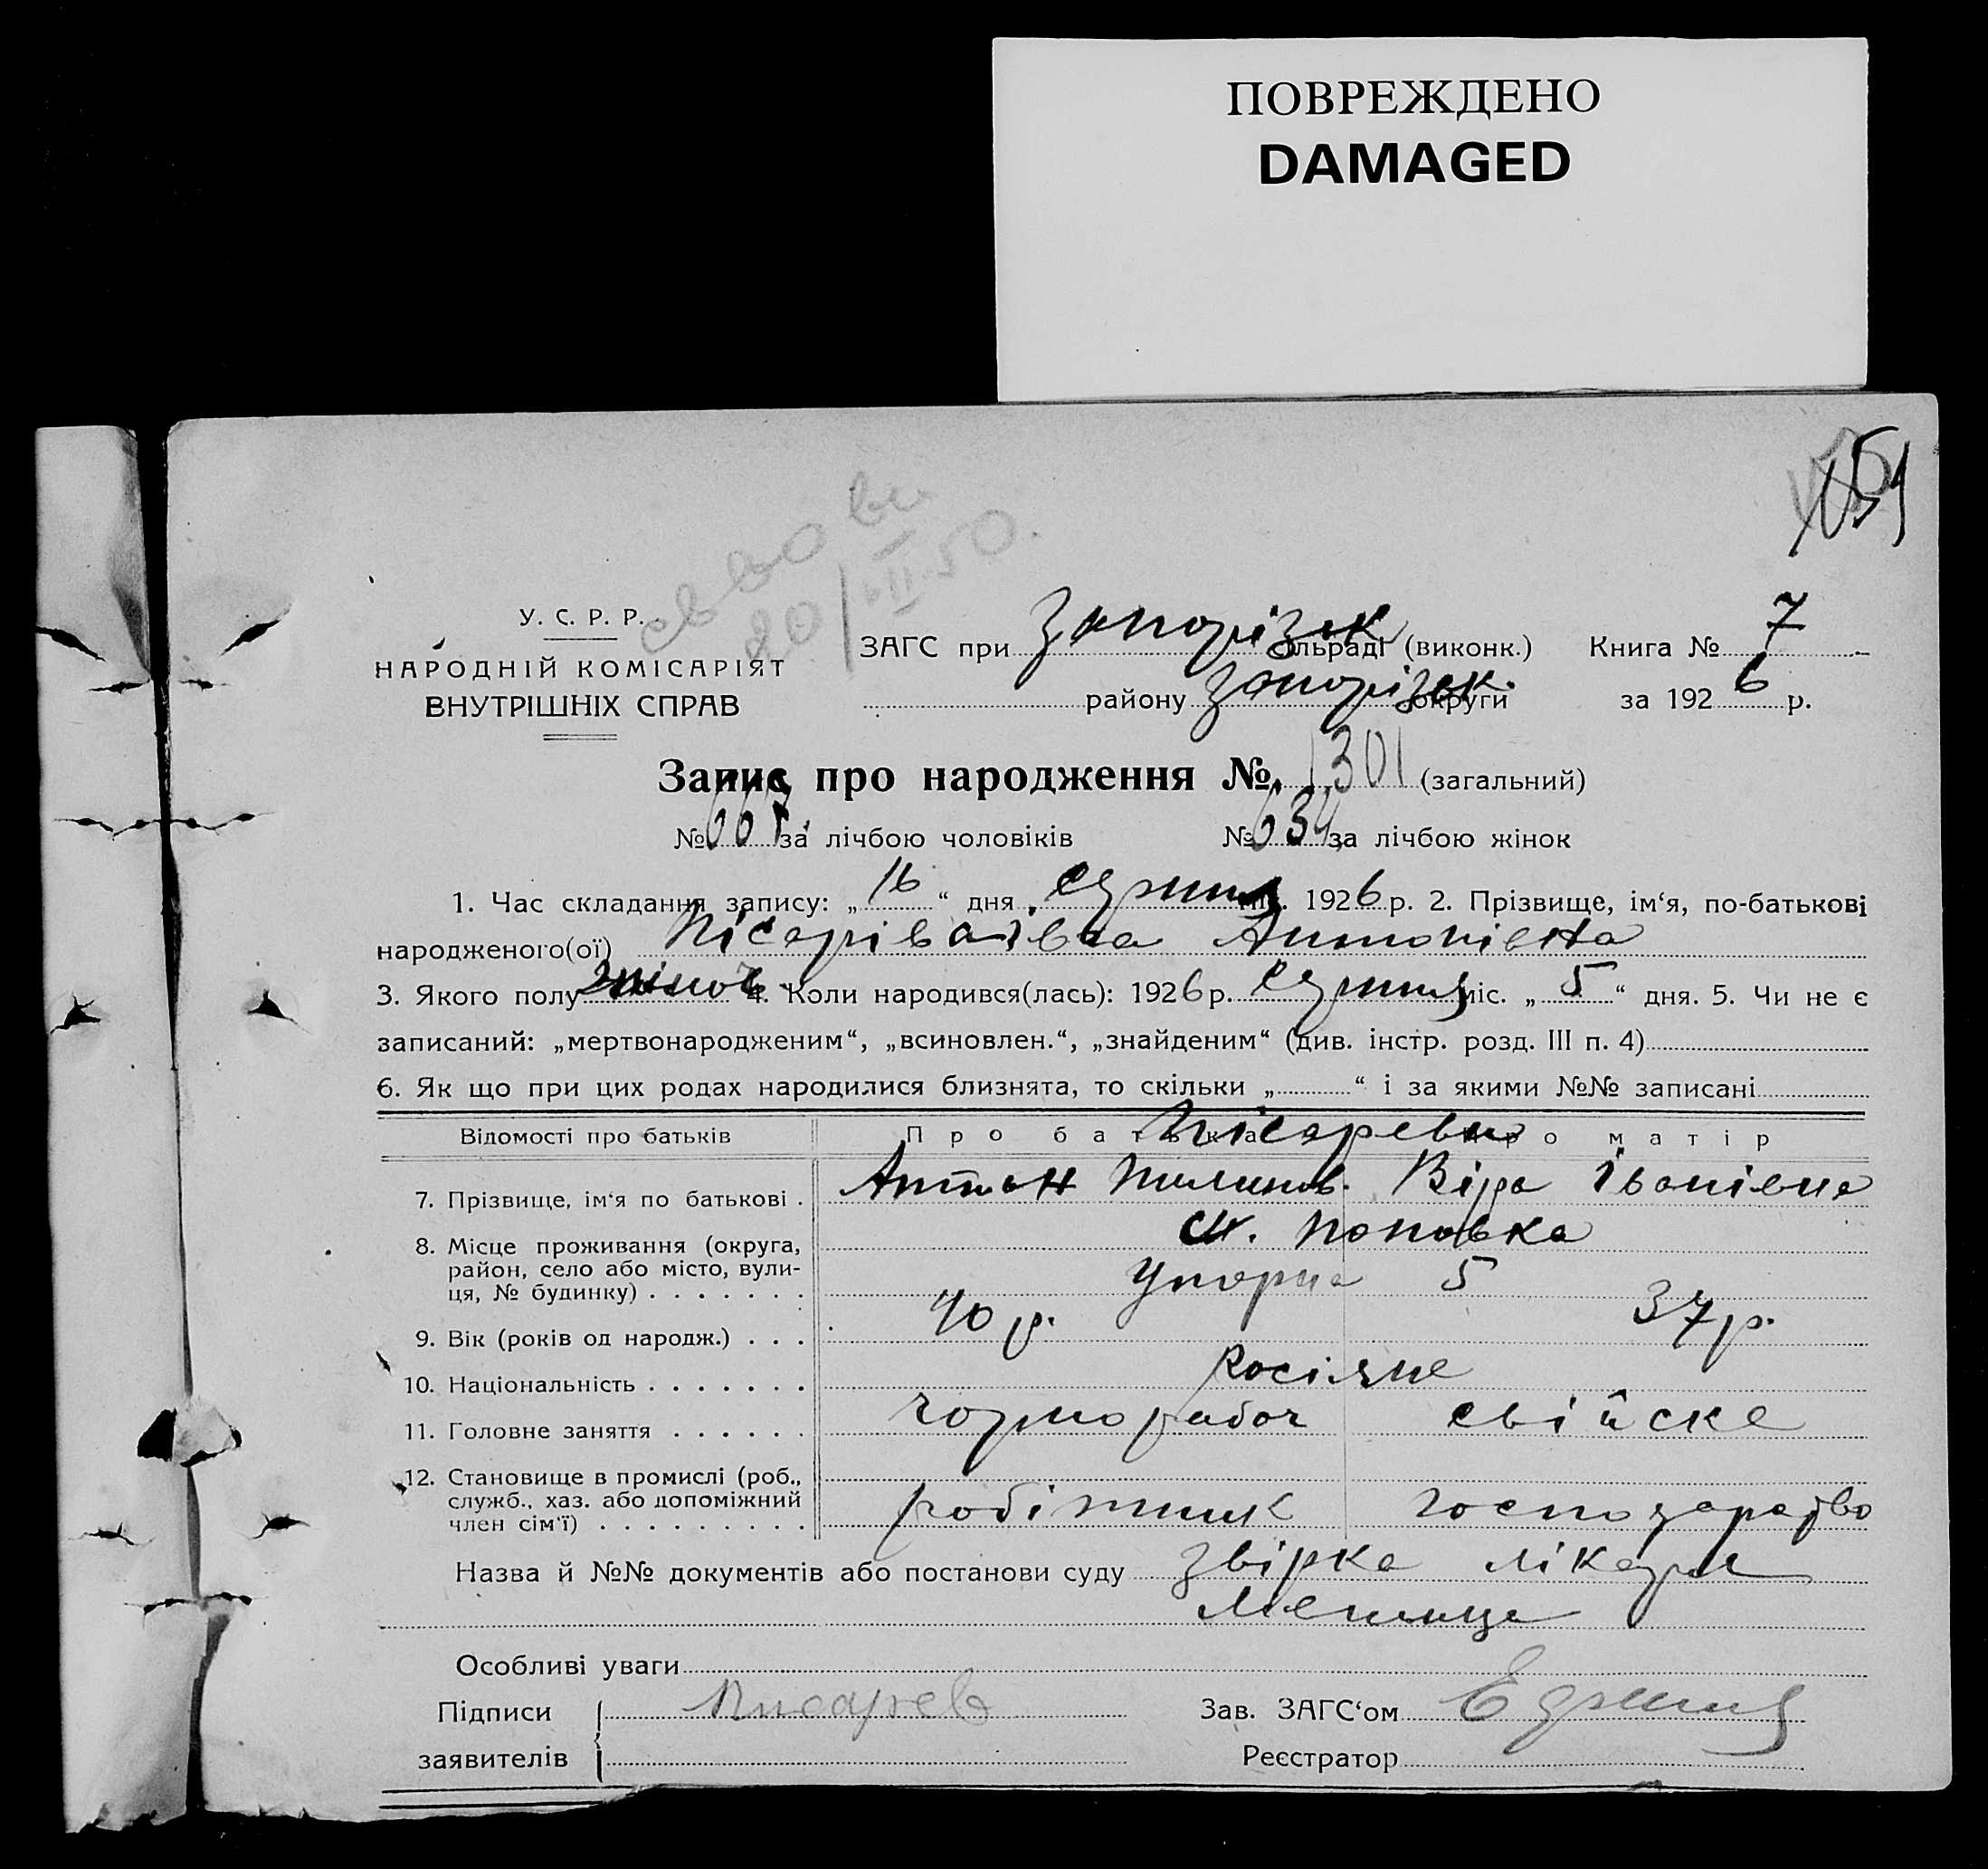 ПОВРЕЖДЕНО
DAMAGED
У. С. Р. Р.
НАРОДНІЙ КОМІСАРІЯТ
ВНУТРІШНІХ СПРАВ
ЗАГС при Запорізьк (виконк.) Книга № 7
району Запорізьк. округи за 1926 р.
Запис про народження № 1301 (загальний)
№ 667 за лічбою чоловіків № 634 за лічбою жінок
1. Час складання запису: „16“ дня Серпня 1926 р. 2. Прізвище, ім‘я, по-батькові
народженого(ої) Антонівна
3. Якого полу жіноч. 4. Коли народився(лась): 1926 р. Серпня міс. „5“ дня. 5. Чи не є
записаний: „мертвонародженим“, „всиновлен.“, „знайденим“ (див. інстр. розд. III п. 4)
6. Як що при цих родах народилися близнята, то скільки „ “ і за якими №№ записані
Відомості про батьків Про батька Про матір
Пісареви
7. Прізвище, ім‘я по батькові . Антон Пилипов. Віра Іванівна
8. Місце проживання (округа, район, село або місто, вулиця, № будинку) . . . . . . . ст. Поповка
5
9. Вік (років од народж.) . . . 40 р. 37 р.
10. Національність . . . . . . . Росіяне
11. Головне заняття . . . . . . чорнорабоч свійске
12. Становище в промислі (роб., служб., хаз. або допоміжний член сім‘ї) . . . . . . . . . робітник господарство
Назва й №№ документів або постанови суду Звірка лікаря
Особливі уваги
Підписи заявителів Писарев
Зав. ЗАГС‘ом
Реєстратор